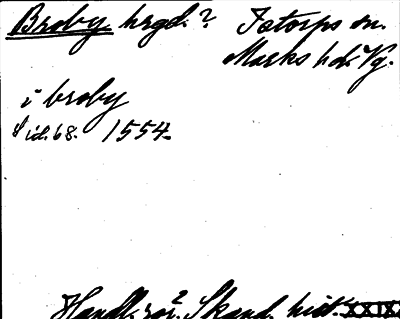 Broby. hrgd.? Istorps sn.
Marks hd. Vg.
i broby
sid. 68. 1554.
Handl. rör. Skand. hist. XXIX